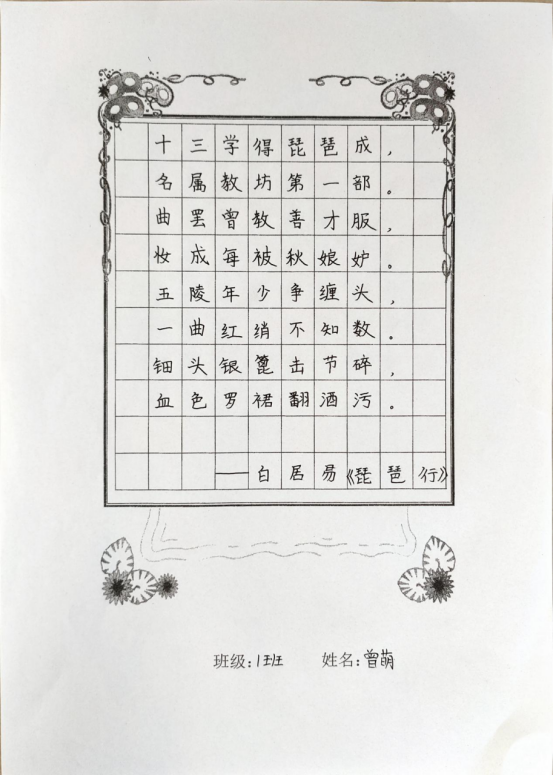 十三学得琵琶成，
名属教坊第一部。
曲罢曾教善才服，
妆成每被秋娘妒。
五陵年少争缠头，
一曲红绡不知数。
钿头银篦击节碎，
血色罗裙翻酒污。
——白居易《琵琶行》
班级：1班 姓名：曾萌